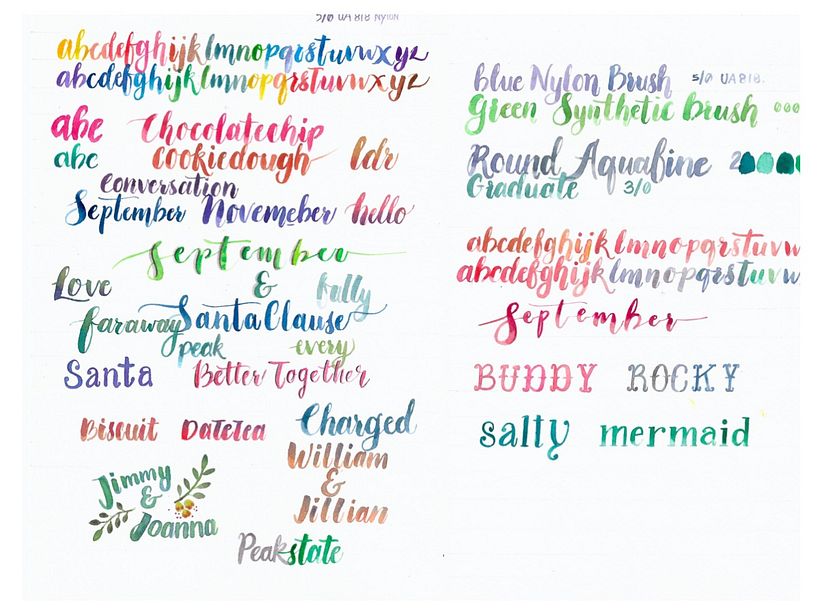 5/0 UA 818 NYLON
abcdefghijklmnopqrstuvwxyz
abcdefghijklmnopqrstuvwxyz
abc Chocolatechip
abc cookiedough ldr
conversation
September Novemeber hello
September
Love & fully
faraway Santa Clause
peak every
Santa Better Together
Biscuit DaTeTea Charged
William
&
Jillian
Jimmy
&
Joanna
Peakstate
blue Nylon Brush 5/0 UA818.
Green Synthetic Brush 000
Round Aquafine 2
Graduate 3/0
abcdefghijklmnopqrstuvw
abcdefghijklmnopqrstuvw
September
BUDDY ROCKY
salty mermaid